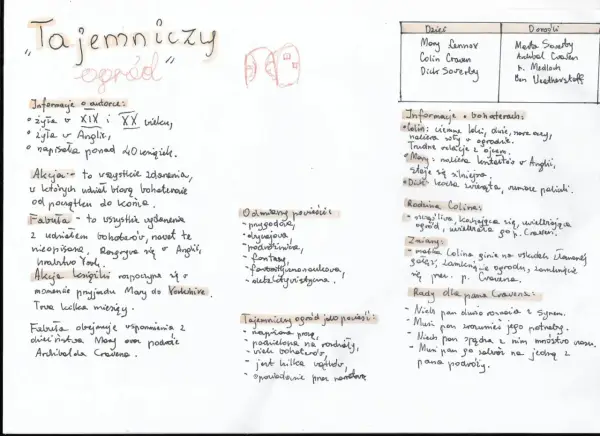 "Tajemniczy
ogród"
Informacje o autorce:
• żyła w XIX i XX wieku,
• żyła w Anglii,
• napisała ponad 40 książek.
Akcja - to wszystkie zdarzenia,
w których udział biorą bohaterowie
od początku do końca.
Fabuła - to wszystkie wydarzenia
z udziałem bohaterów, nawet te
nieopisane. Rozgrywa się w Anglii,
hrabstwo York.
Akcja książki rozpoczyna się w
momencie przyjazdu Mary do Yorkshire.
Trwa kilka miesięcy.
Fabuła obejmuje wspomnienia z
dzieciństwa Mary oraz podróże
Archibalda Cravena.
Odmiany powieści:
- przygodowa,
- obyczajowa
- podróżnicza,
- fantasy,
- fantastycznonaukowa,
- detektywistyczna.
Tajemniczy ogród jako powieść:
- napisana prozą,
- podzielona na rozdziały,
- wielu bohaterów,
- jest kilka wątków,
- opowiadanie przez narratora
Dzieci
Dorośli
Mary Lennox
Colin Craven
Dick Sowerby
Marta Sowerby
Archibald Craven
p. Medlock
Ben Weatherstaff
Informacje o bohaterach:
• Colin: ciemne loki, duże, szare oczy,
nabiera siły w ogrodzie.
Trudne relacje z ojcem.
• Mary: nabiera w Anglii,
staje się silniejsza.
• Dick: kocha zwierzęta, rumiane policzki.
Rodzina Colina:
- kochająca się, uwielbiająca
ogród, p. Craven.
Zmiany:
- matka Colina ginie na skutek złamanej
gałęzi, zamknięcie ogrodu, zamknięcie
się przez p. Cravena.
Rady dla pana Cravena:
- Niech pan dużo rozmawia z synem.
- Musi pan zrozumieć jego potrzeby.
- Niech pan spędza z nim mnóstwo czasu.
- Musi pan go zabrać na jedną z
pana podróży.